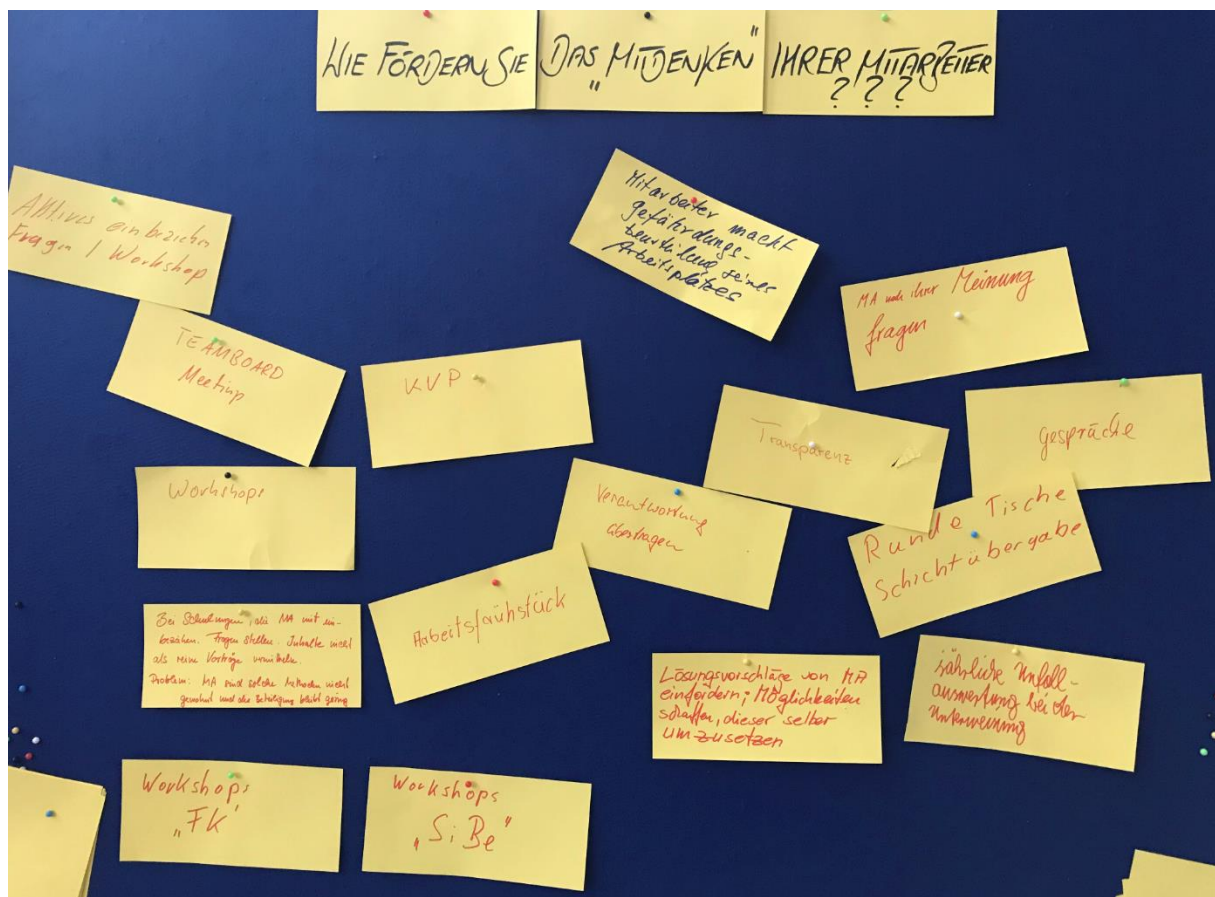 WIE FÖRDERN SIE DAS „MITDENKEN" IHRER MITARBEITER
? ? ?
Aktives einbeziehn
Fragen / Workshop
Mitarbeiter macht
gefährdungs-
beurteilung seines
Arbeitsplatzes
MA nach ihrer Meinung
fragen
TEAMBOARD
Meeting
KVP
Transparenz
Gespräche
Workshops
Verantwortung
übertragen
Runde Tische
Schichtübergabe
Arbeitsfrühstück
Bei Schulungen, die MA mit ein-
beziehen. Fragen stellen. Inhalte nicht
als reine Vorträge vermitteln.
Problem: MA sind solche Methoden nicht
gewohnt und die Beteiligung bleibt gering
Lösungsvorschläge von MA
einfordern; Möglichkeiten
schaffen, dieser selber
umzusetzen
jährliche Unfall-
auswertung bei der
Unterweisung
Workshops
„FK"
Workshops
„SiBe"